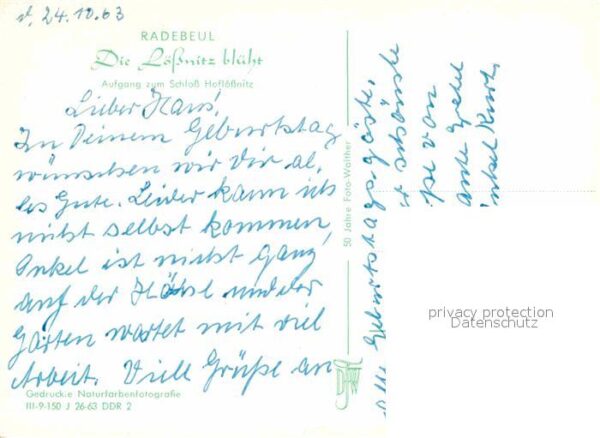 d. 24.10.63
RADEBEUL
Die Lößnitz blüht
Aufgang zum Schloß Hoflößnitz
Lieber Hans!
Zu Deinem Geburtstag
wünschen wir Dir al,
les Gute. Leider kann ich
nicht selbst kommen,
Onkel ist nicht ganz
auf der Höhe und der
Garten wartet mit viel
Arbeit. Viele Grüße an
alle Geburtstagsgäste,
schönste
von
Tante Grete
Onkel Kurt
50 Jahre Foto-Walther
Gedruckte Naturfarbenfotografie
III-9-150 J 26-63 DDR 2
privacy protection
Datenschutz